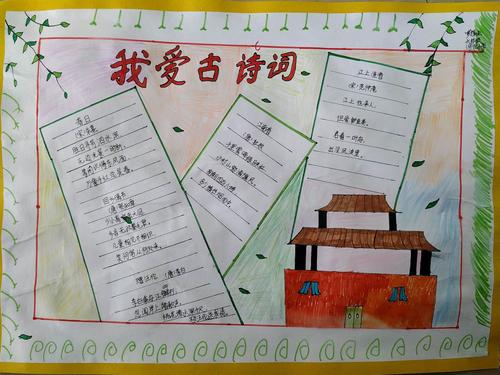 我爱古诗词
春日
(宋)朱熹
胜日寻芳泗水滨,
无边光景一时新。
等闲识得东风面,
万紫千红总是春。
回乡偶书
(唐)贺知章
少小离家老大回,
乡音无改鬓毛衰。
儿童相见不相识,
笑问客从何处来。
赠汪伦 (唐)李白
李白乘舟将欲行,
忽闻岸上踏歌声。
桃花潭水深千尺,
不及汪伦送我情。
江南春
(唐)杜牧
千里莺啼绿映红,
水村山郭酒旗风。
南朝四百八十寺,
多少楼台烟雨中。
江上渔者
(宋)范仲淹
江上往来人,
但爱鲈鱼美。
君看一叶舟,
出没风波里。